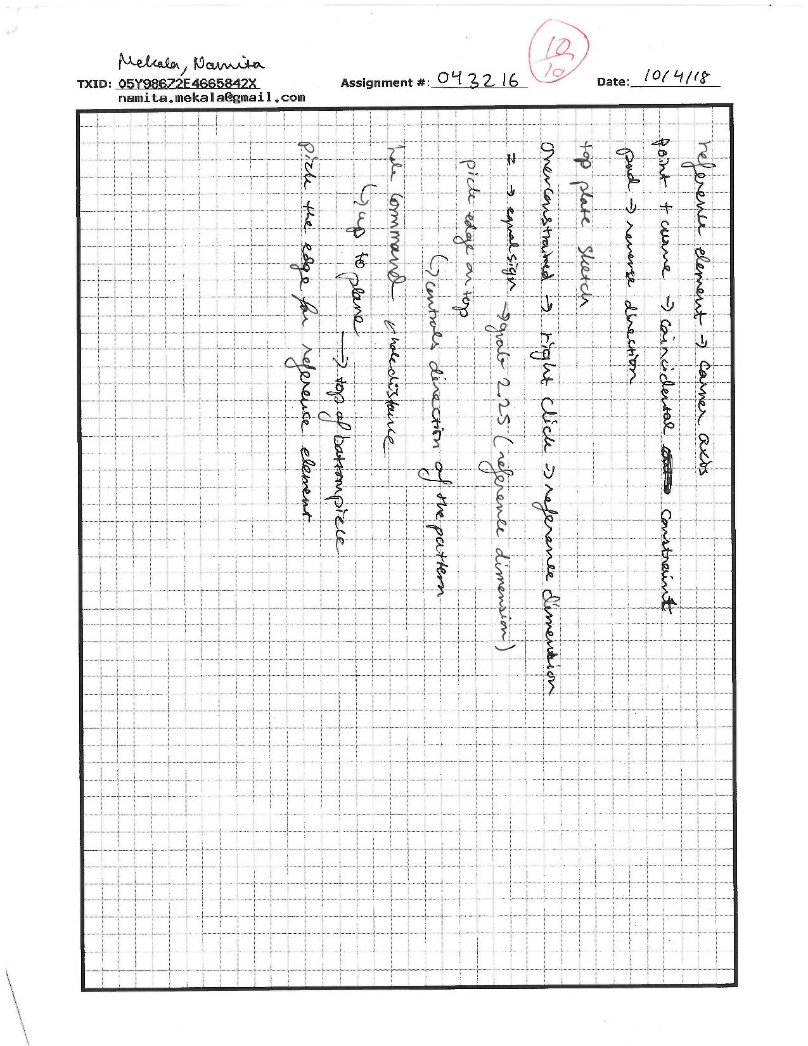 Mekala, Namita
10/10
TXID: 05Y98672E4665842X
Assignment #: 043216
Date: 10/4/18
namita.mekala@gmail.com
reference element → corner axis
point + curve → coincidental constraint
pad → reverse direction
top plate sketch
overconstrained → right click → reference dimention
= → equal sign → grab 2.25 (reference dimension)
pick edge on top
↳ controls direction of the pattern
hole command hole distance
↳ up to plane → top of bottom piece
pick the edge for reference element